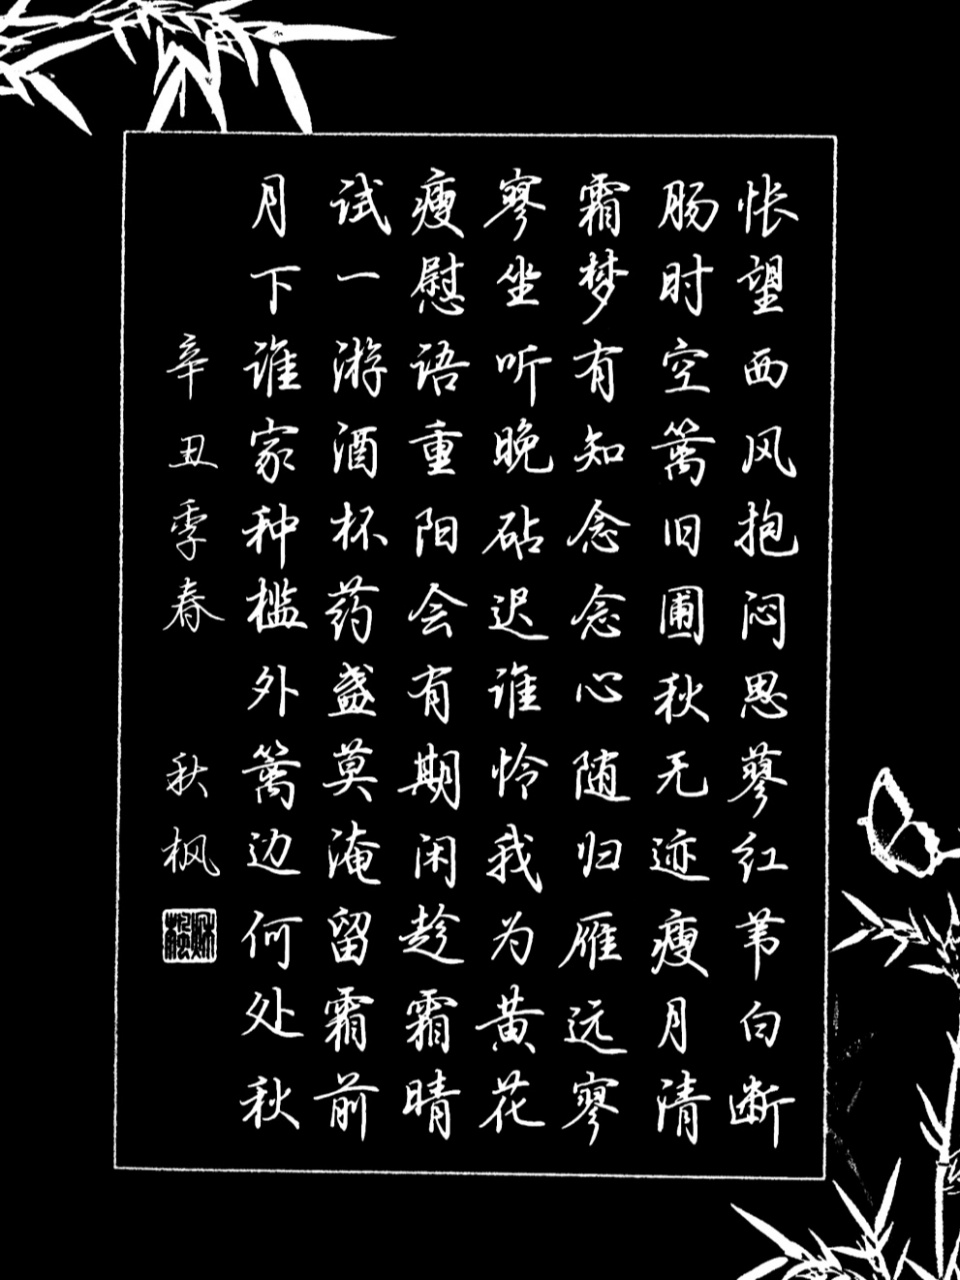 怅望西风抱闷思蓼红苇白断
肠时空篱旧圃秋无迹瘦月清
霜梦有知念念心随归雁远寥
寥坐听晚砧迟谁怜我为黄花
瘦慰语重阳会有期闲趁霜晴
试一游酒杯药盏莫淹留霜前
月下谁家种槛外篱边何处秋
辛丑季春 秋枫